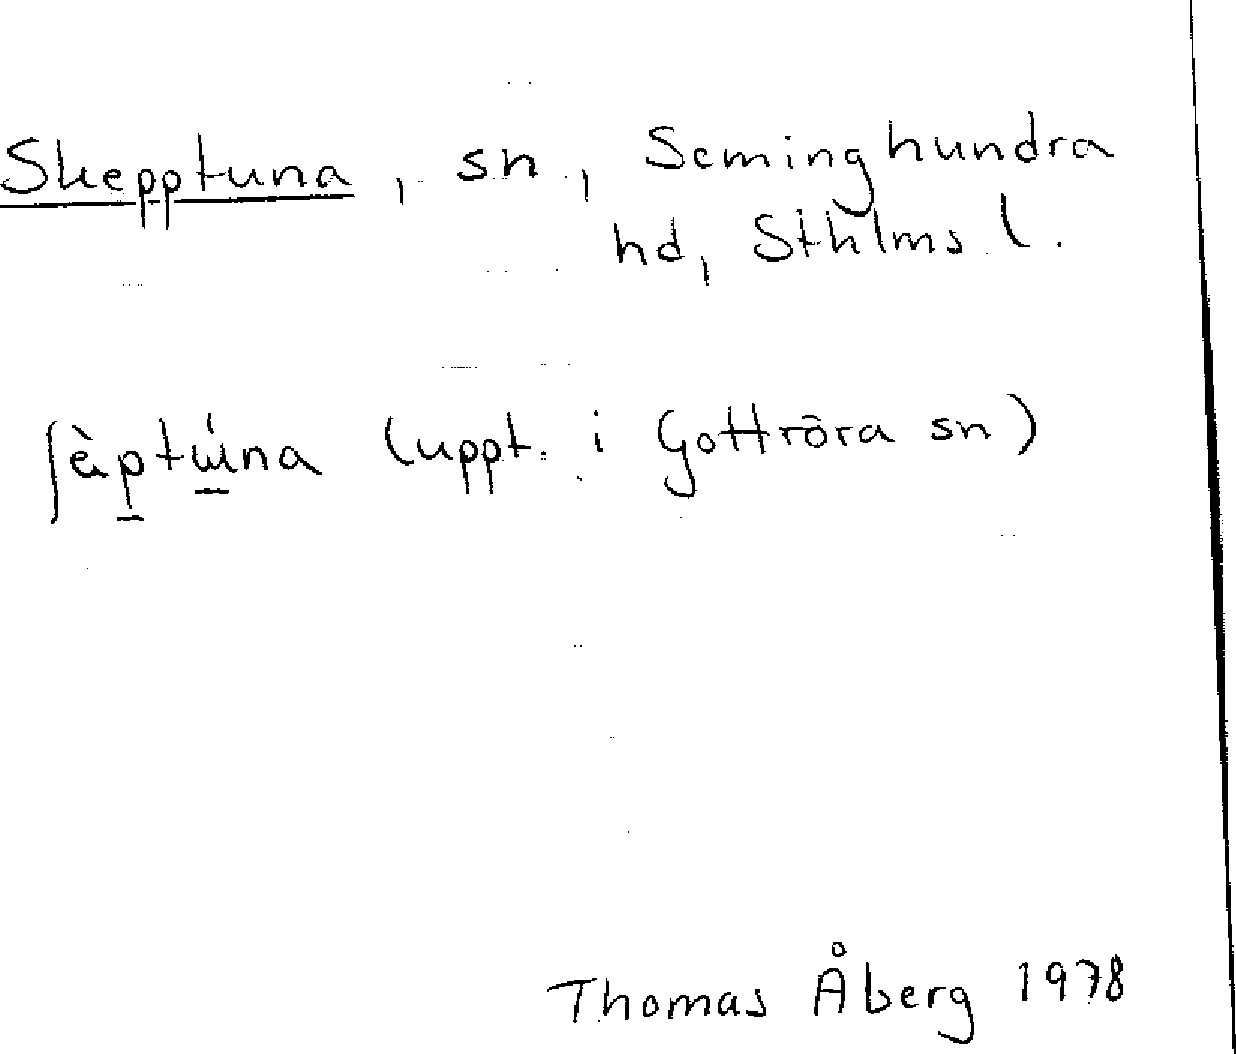 Skepptuna, sn, Seminghundra
hd, Sthlms l.
ʃèptɯ́na (uppt. i Gottröra sn)
Thomas Åberg 1978